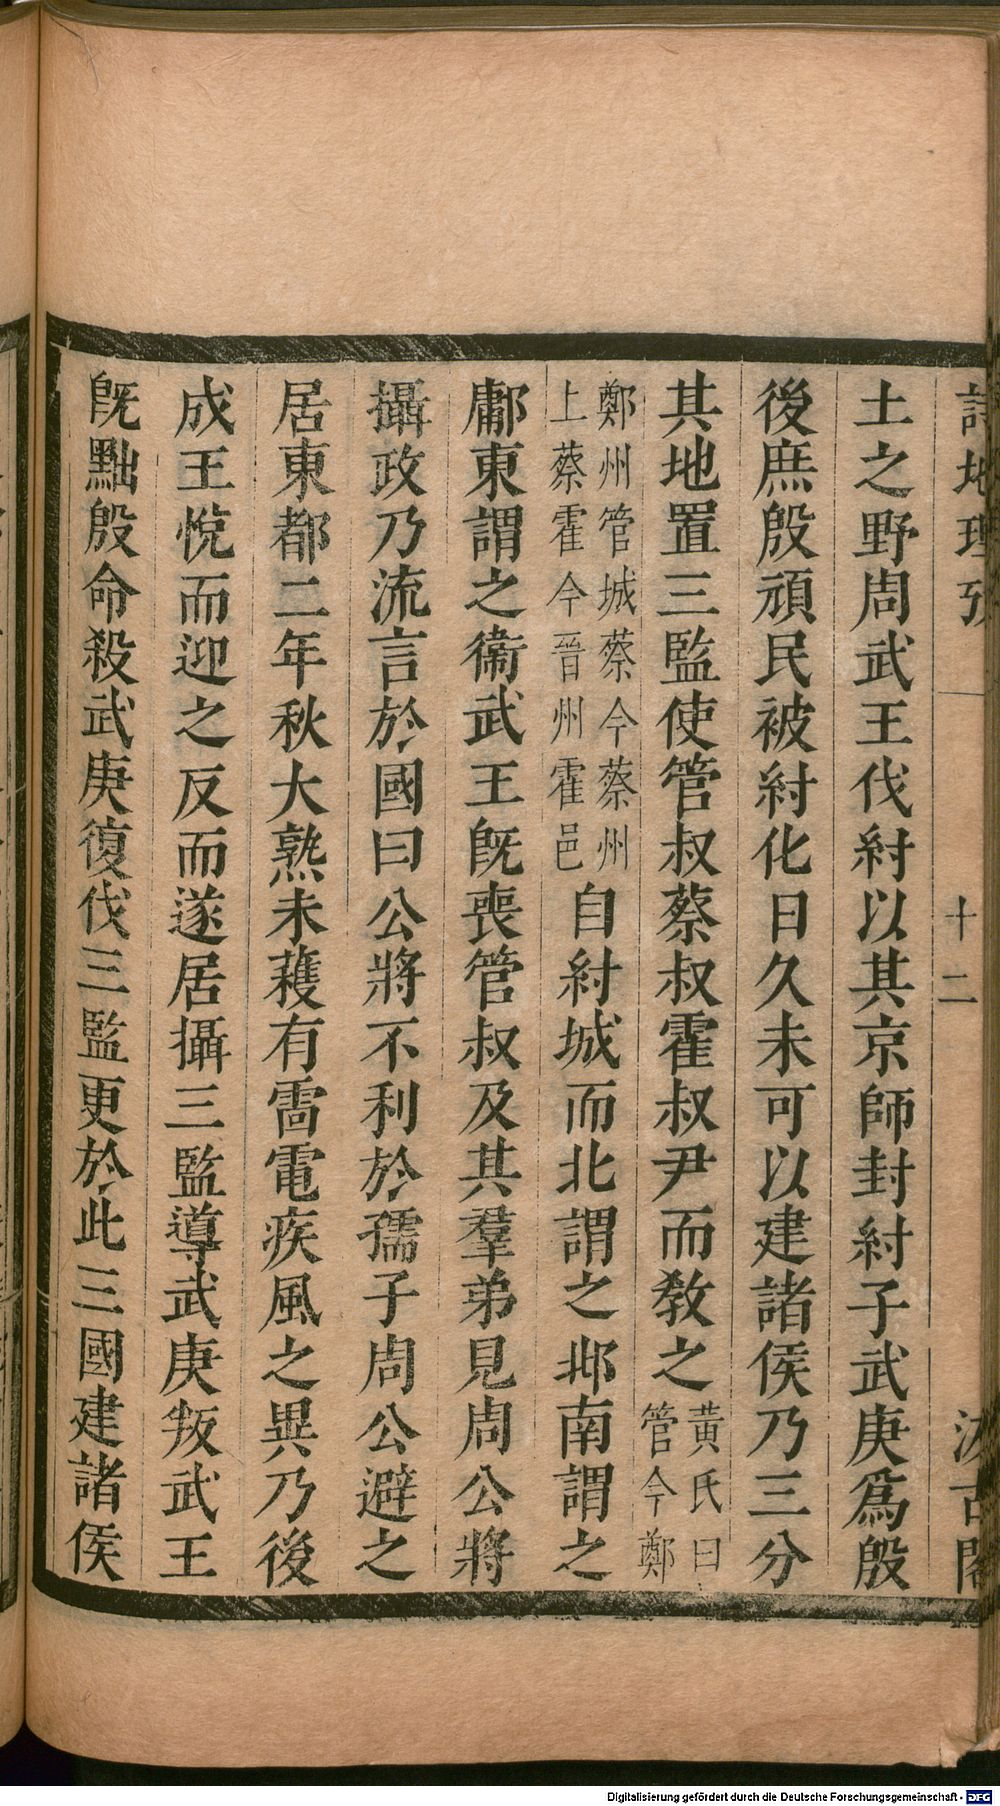 詩地理攷 十二 汲古閣
土之野周武王伐紂以其京師封紂子武庚爲殷
後庶殷頑民被紂化日久未可以建諸侯乃三分
其地置三監使管叔蔡叔霍叔尹而教之黃氏曰
管今鄭
鄭州管城蔡今蔡州
上蔡霍今晉州霍邑自紂城而北謂之邶南謂之
鄘東謂之衞武王旣喪管叔及其羣弟見周公將
攝政乃流言於國曰公將不利於孺子周公避之
居東都二年秋大熟未穫有雷電疾風之異乃後
成王悅而迎之反而遂居攝三監導武庚叛武王
旣黜殷命殺武庚復伐三監更於此三國建諸侯
Digitalisierung gefördert durch die Deutsche Forschungsgemeinschaft - DFG